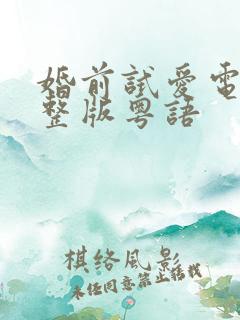 婚前試愛電
整版粵語
棋络風影
未经同意禁止转载